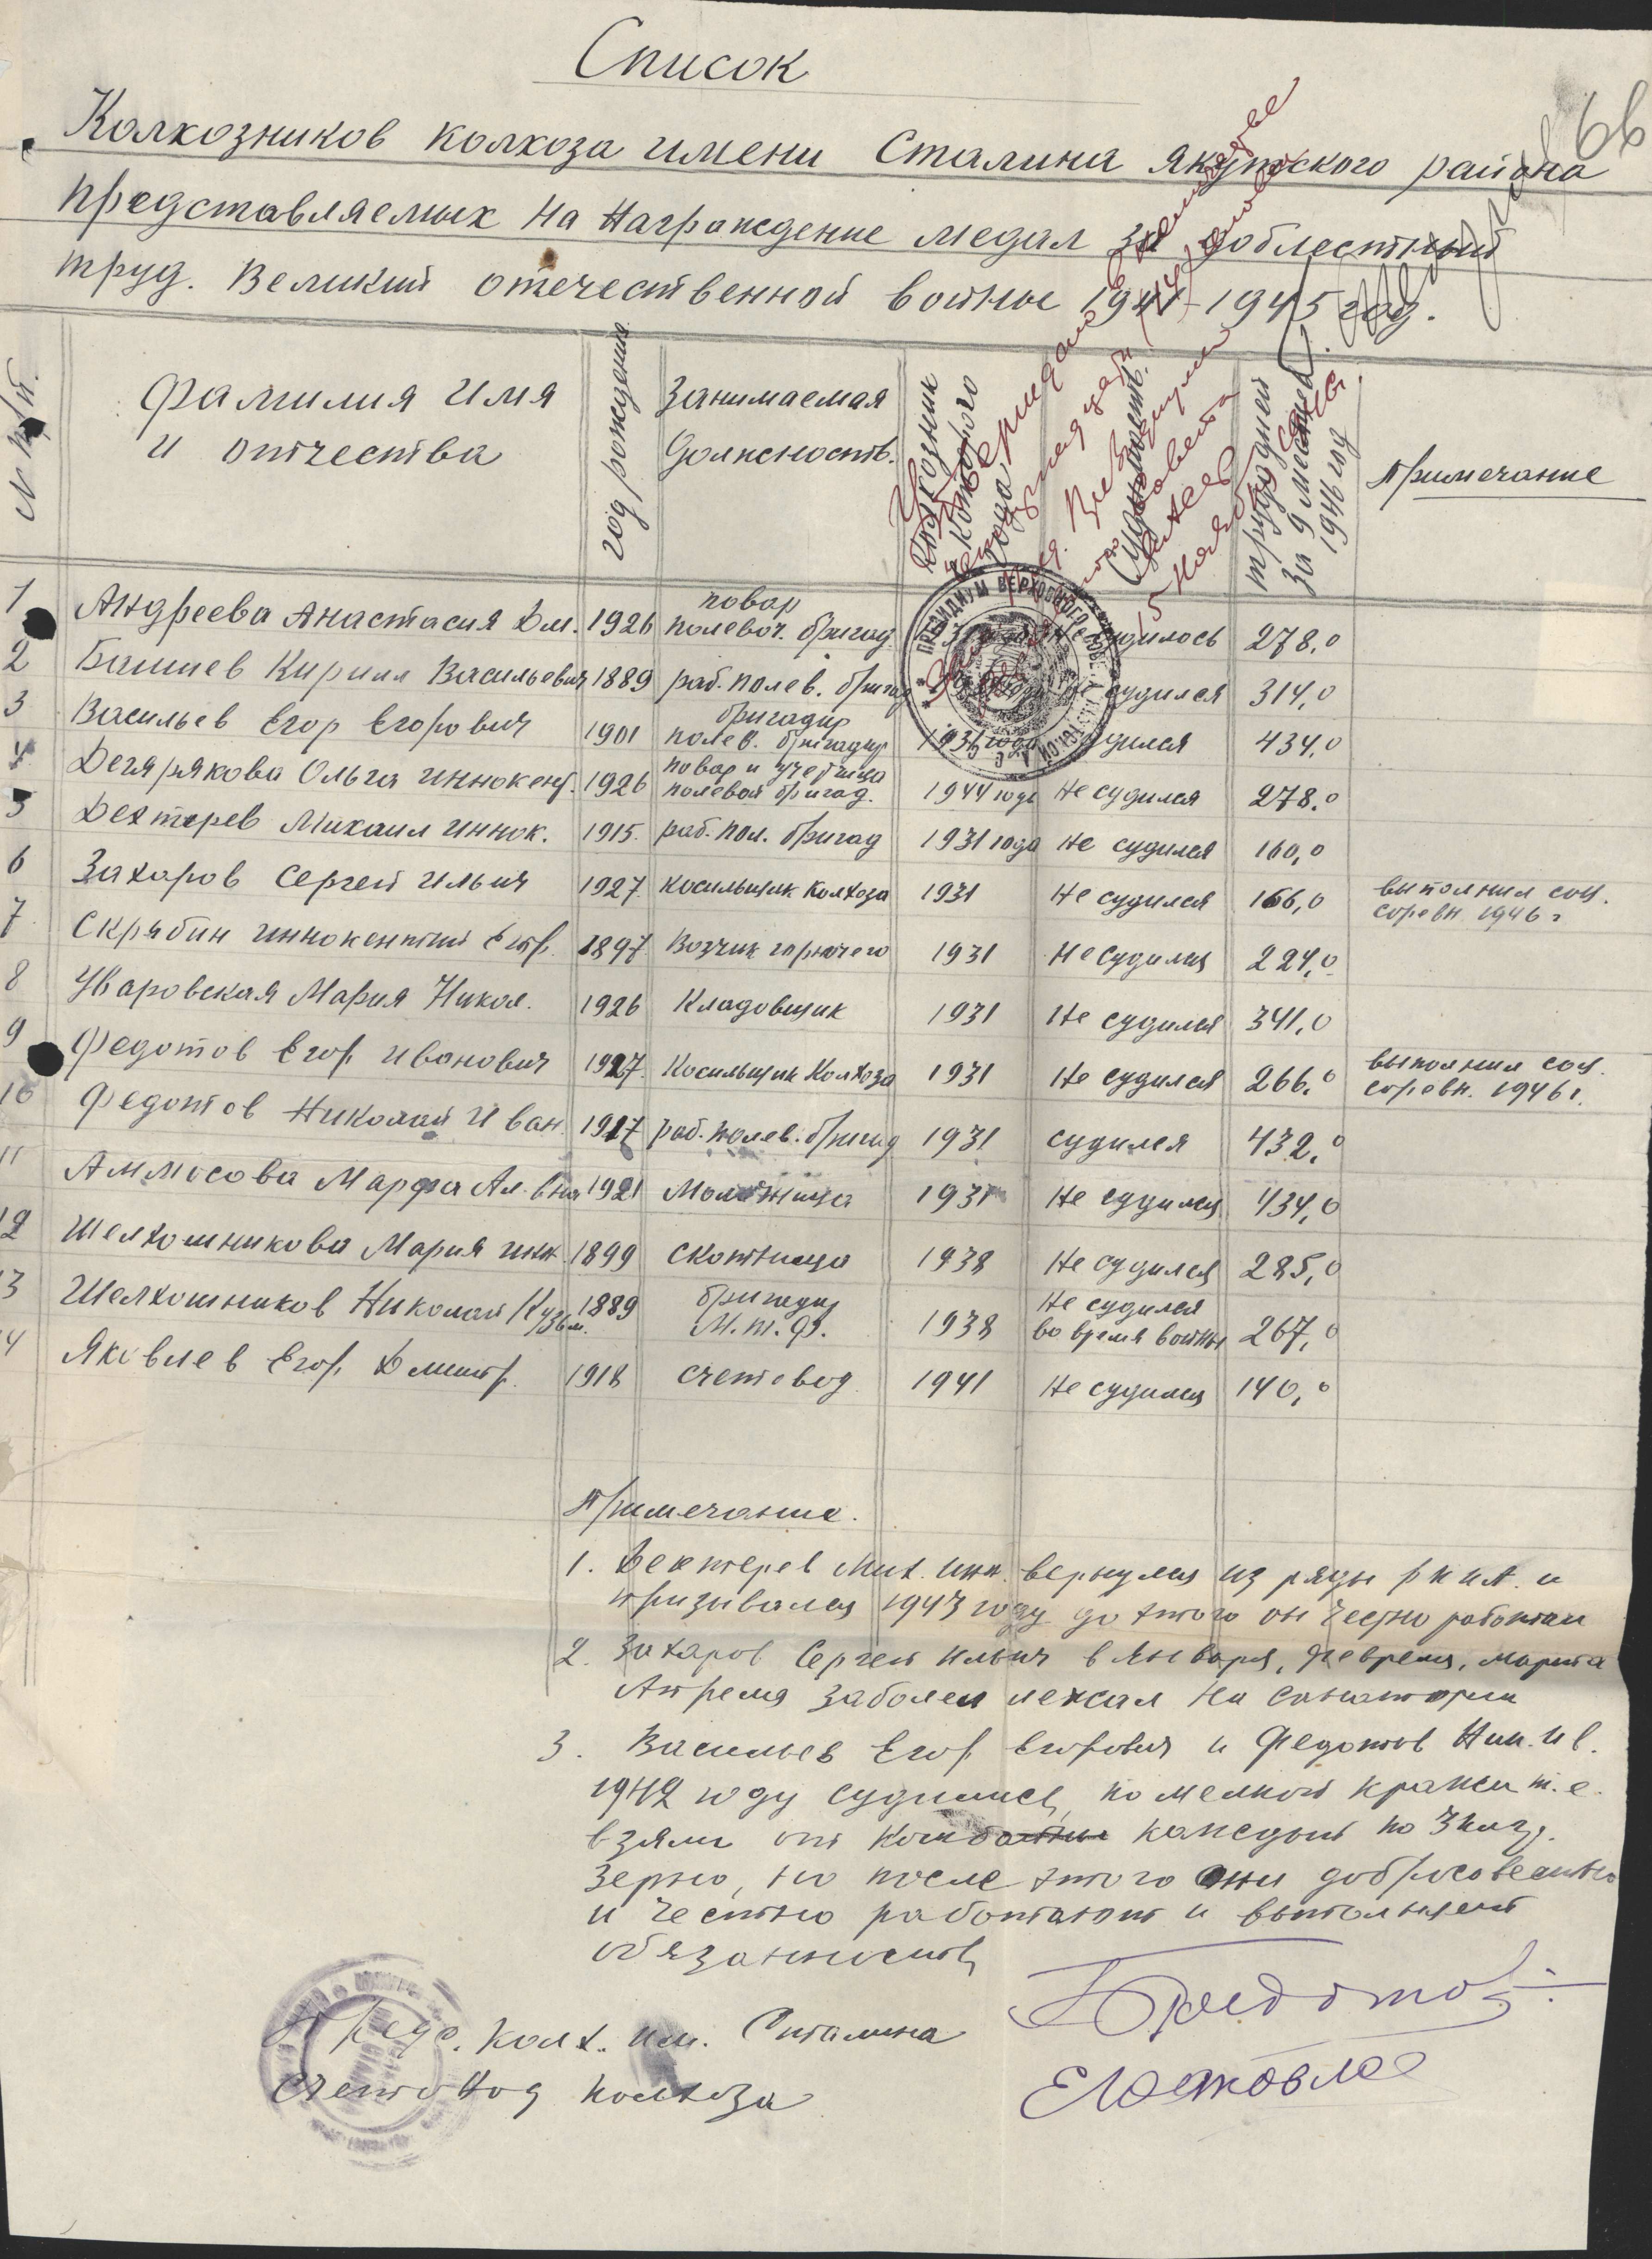 Список
66
Колхозников колхоза имени Сталина Якутского района
представляемых на награждение медал за доблестный
труд. Великий отечественной войны 1941-1945 год.
№ п/п. фамилия имя и отчества год рождения Занимаемая должность. Колхозник с которого года Судимость. трудодней за 9 месяцев 1946 год Примечание
1 Андреева Анастасия Дм. 1926 повар полевой. бригад. не судилось 278,0
2 Башиев Кирилл Васильевич 1889 раб. полев. бригад не судился 314,0
3 Васильев Егор Егорович 1901 бригадир полев. бригадир 1931 года судился 434,0
4 Дегярякова Ольга Иннокент. 1926 повар и учетчица полевой бригад. 1944 года не судился 278.0
5 Дехтерев Михаил Иннок. 1915. раб. пол. бригад 1931 года не судился 160,0
6 Захаров Сергей Ильич 1927. косильщик колхоза 1931 не судился 166,0 выполнил соц. соревн. 1946 г
7 Скрябин Иннокентий Егор. 1897. Возчик горючего 1931 не судился 224,0
8 Уваровская Мария Никол. 1926 Кладовщик 1931 не судился 341,0
9 Федотов Егор Иванович 1927. Косильщик Колхоза 1931 не судился 266.0 выполнил соц. соревн. 1946 г.
10 Федотов Николай Иван. 1917 раб. полев. бригад 1931 судился 432.0
11 Аммосова Марфа Ал. вна 1921 Молочница 1931 не судился 434,0
12 Шелхошникова Мария Инн. 1899 скотница 1938 не судился 285,0
13 Шелхошников Николай Кузьм. 1889 бригадир М.т.ф. 1938 не судился во время войны 267,0
14 Яковлев Егор Дмитр. 1918 счетовод 1941 не судился 140,0
Примечание.
1. Дехтерев Мих. Инн. вернулся из ряды РККА. и
призывался 1943 году до этого он честно работал
2. Захаров Сергей Ильич в Января, Февреля, марта
Апреля заболел лежал на санатории
3. Васильев Егор Егорович и Федотов Ник. Ив.
1942 году судились, по мелкой кражи т.е.
взяли от каждый по 3 клгр.
зерно, но после этого они добросовестно
и честно работают и выполняет
обязанность
Пред. колх. им. Сталина
Счетовод колхоза
ПРЕЗИДИУМ ВЕРХОВНОГО